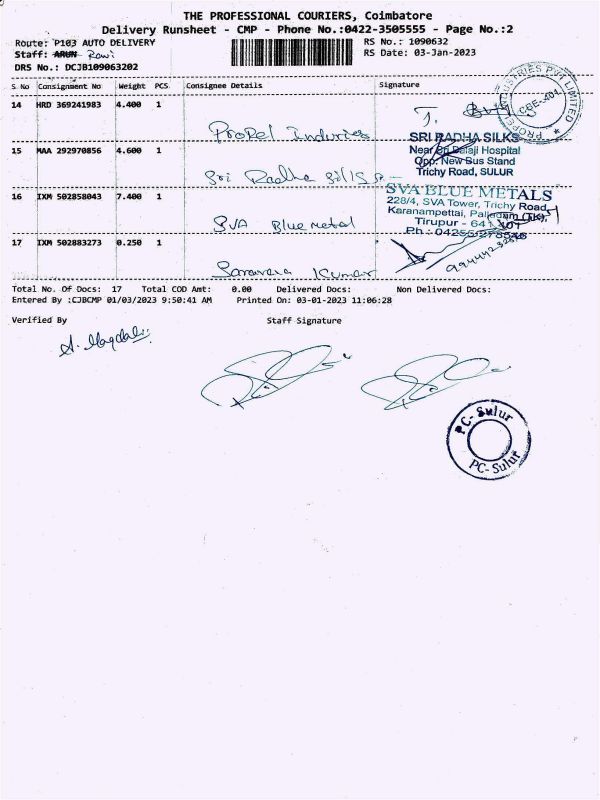 THE PROFESSIONAL COURIERS, Coimbatore
Delivery Runsheet - CMP - Phone No.:0422-3505555 - Page No.:2
Route: P103 AUTO DELIVERY
RS No.: 1090632
Staff: ARUN Ravi
RS Date: 03-Jan-2023
DRS No.: DCJB109063202
S No Consignment No Weight PCS Consignee Details Signature
14 HRD 369241983 4.400 1 Propel Induries
PROPEL INDUSTRIES PVT LIMITED
CBE-401
15 MAA 292970856 4.600 1 Sri Radha Sills
SRI RADHA SILKS
Near Sri Balaji Hospital
Opp. New Bus Stand
Trichy Road, SULUR
16 IXM 502858043 7.400 1 SVA Bluemetal
SVA BLUE METALS
228/4, SVA Tower, Trichy Road,
Karanampettai, Palladam (TK),
Tirupur - 641 401
Ph : 04255/275546
17 IXM 502883273 0.250 1 Saravana Kumar
Total No. Of Docs: 17 Total COD Amt: 0.00 Delivered Docs: Non Delivered Docs:
Entered By :CJBCMP 01/03/2023 9:50:41 AM Printed On: 03-01-2023 11:06:28
Verified By Staff Signature
PC- Sulur
PC- Sulur